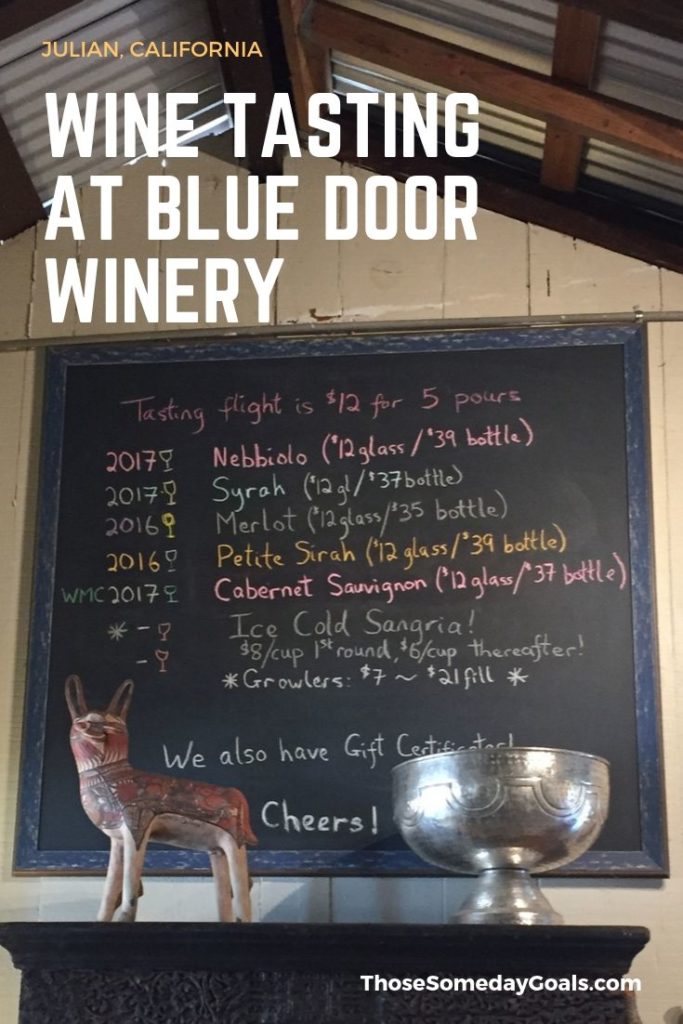 JULIAN, CALIFORNIA
WINE TASTING
AT BLUE DOOR
WINERY
Tasting flight is $12 for 5 pours
2017 Nebbiolo ($12glass/$39 bottle)
2017 Syrah ($12gl/$37bottle)
2016 Merlot ($12glass/$35 bottle)
2016 Petite Sirah ($12 glass/$39 bottle)
WMC 2017 Cabernet Sauvignon ($12glass/$37 bottle)
* - Ice Cold Sangria!
- $8/cup 1st round, $6/cup thereafter!
*Growlers: $7 ~ $21fill *
We also have Gift Certificates!
Cheers!
ThoseSomedayGoals.com